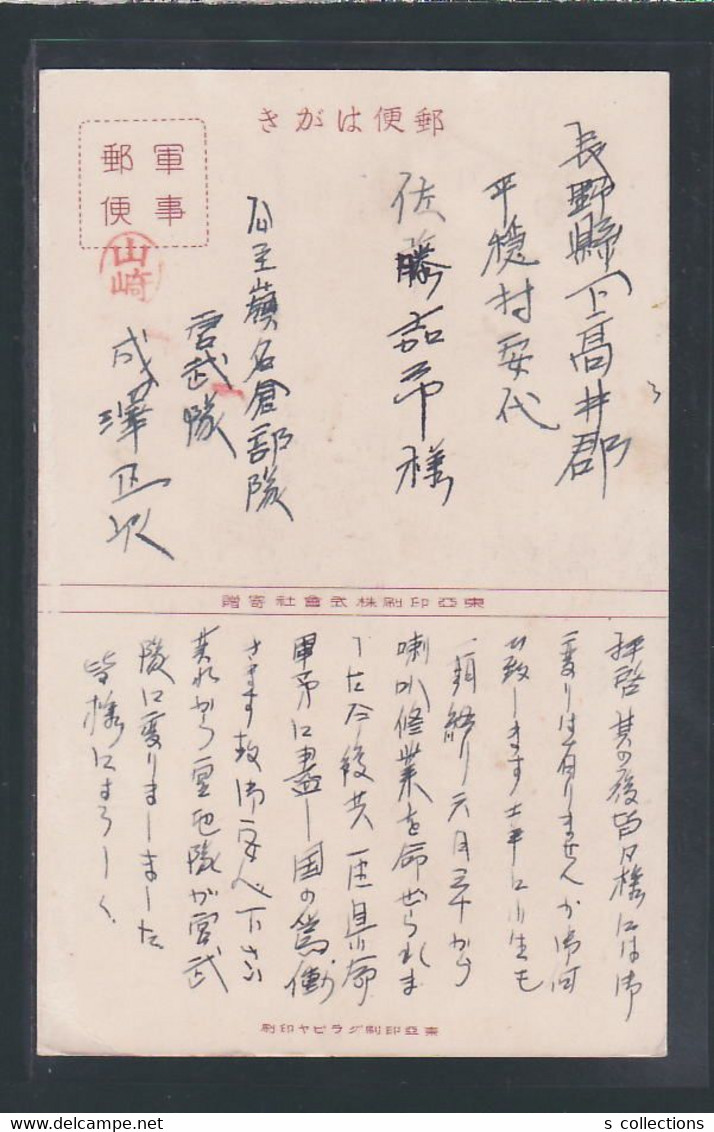 郵便はがき
軍事
郵便
山崎
長野縣下高井郡
平穏村安代
佐藤嘉市様
公主嶺名倉部隊
宮武隊
成澤正次
東亞印刷株式會社寄贈
拝啓其の後皆々様には御
変りは有りませんか御伺
ひ致します 小生も
終り六月三十から
喇叭修業を命ぜられま
した今後共一
軍务に盡し国の為働
きます故御安心下さい
其れから 隊が宮武
隊に変りましました
皆様によろしく
東亞印刷グラビヤ印刷
s collections